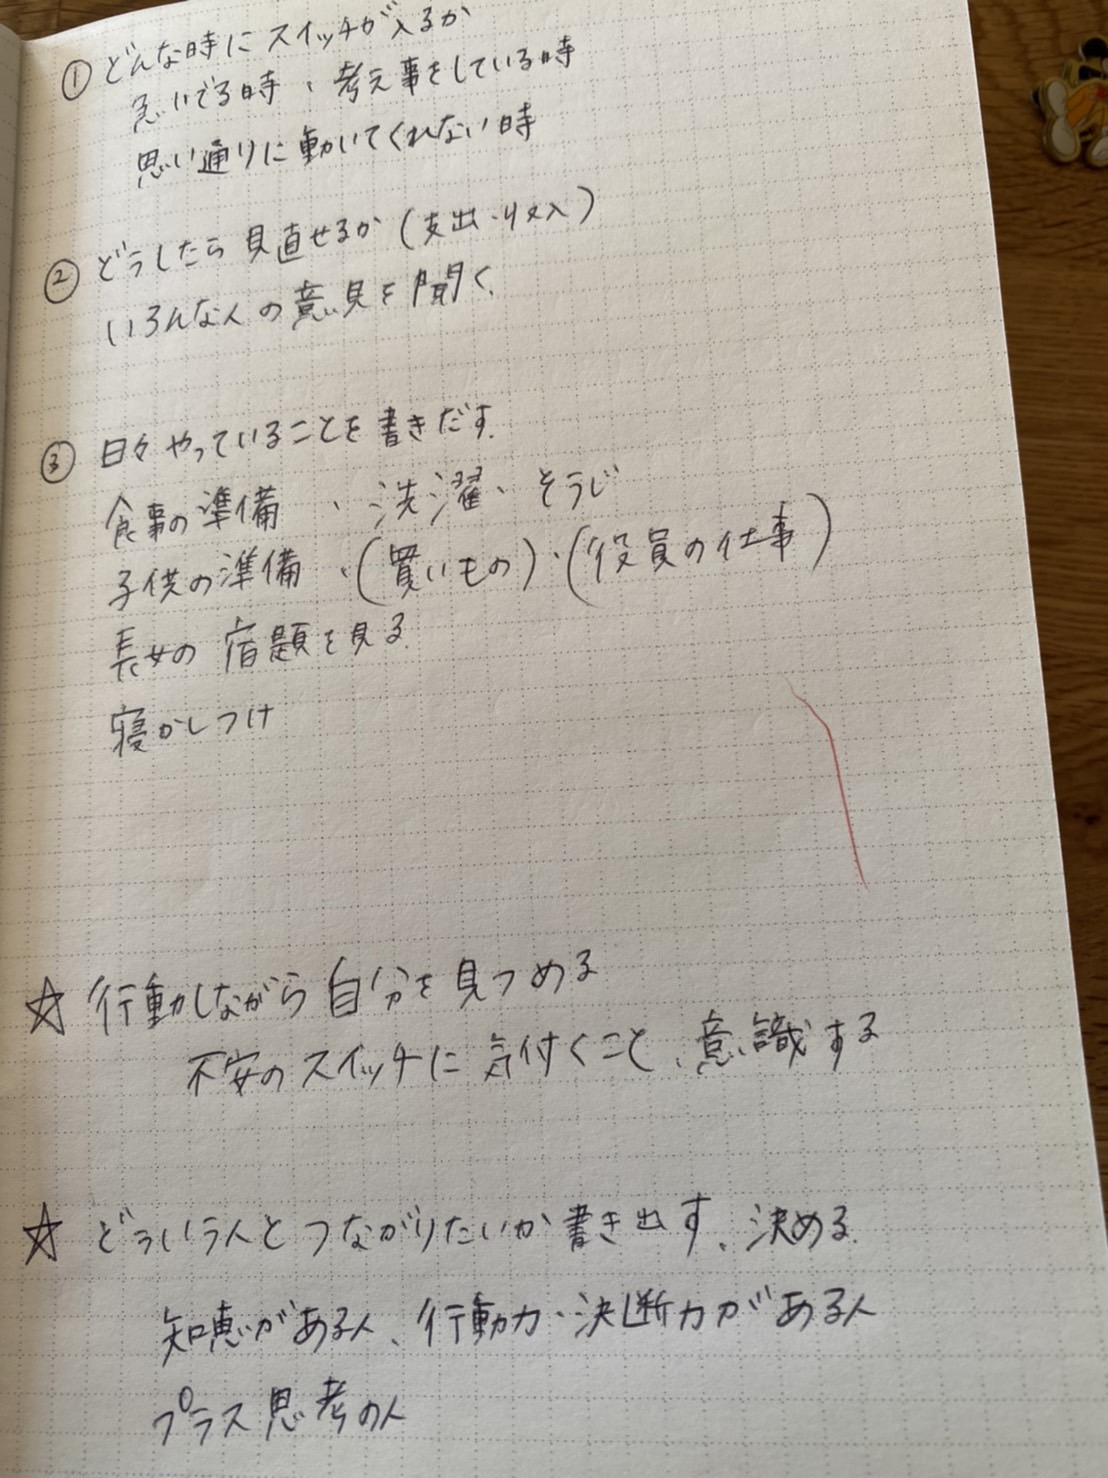 ① どんな時にスイッチが入るか
急いでる時、考え事をしている時
思い通りに動いてくれない時
② どうしたら見直せるか(支出・収入)
いろんな人の意見を聞く.
③ 日々やっていることを書きだす.
食事の準備 、洗濯、そうじ
子供の準備 、(買いもの)、(役員の仕事)
長女の宿題を見る.
寝かしつけ
☆ 行動しながら自分を見つめる
不安のスイッチに気付くこと、意識する
☆ どういう人とつながりたいか書き出す、決める.
知恵がある人、行動力・決断力がある人
プラス思考の人